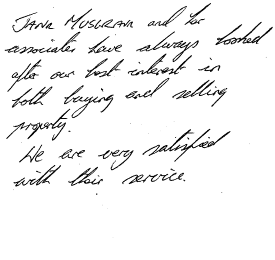 JANA MUSGRAVE and her
associates have always looked
after our best interest in
both buying and selling
property.
We are very satisfied
with their service.